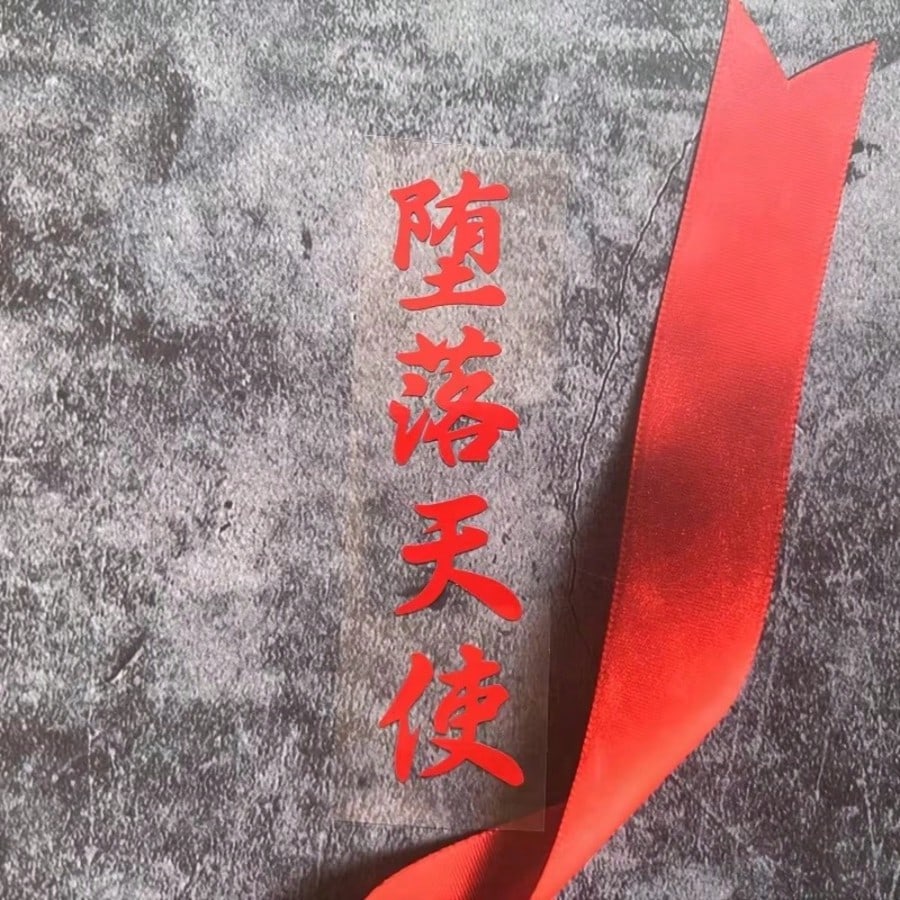 堕落天使